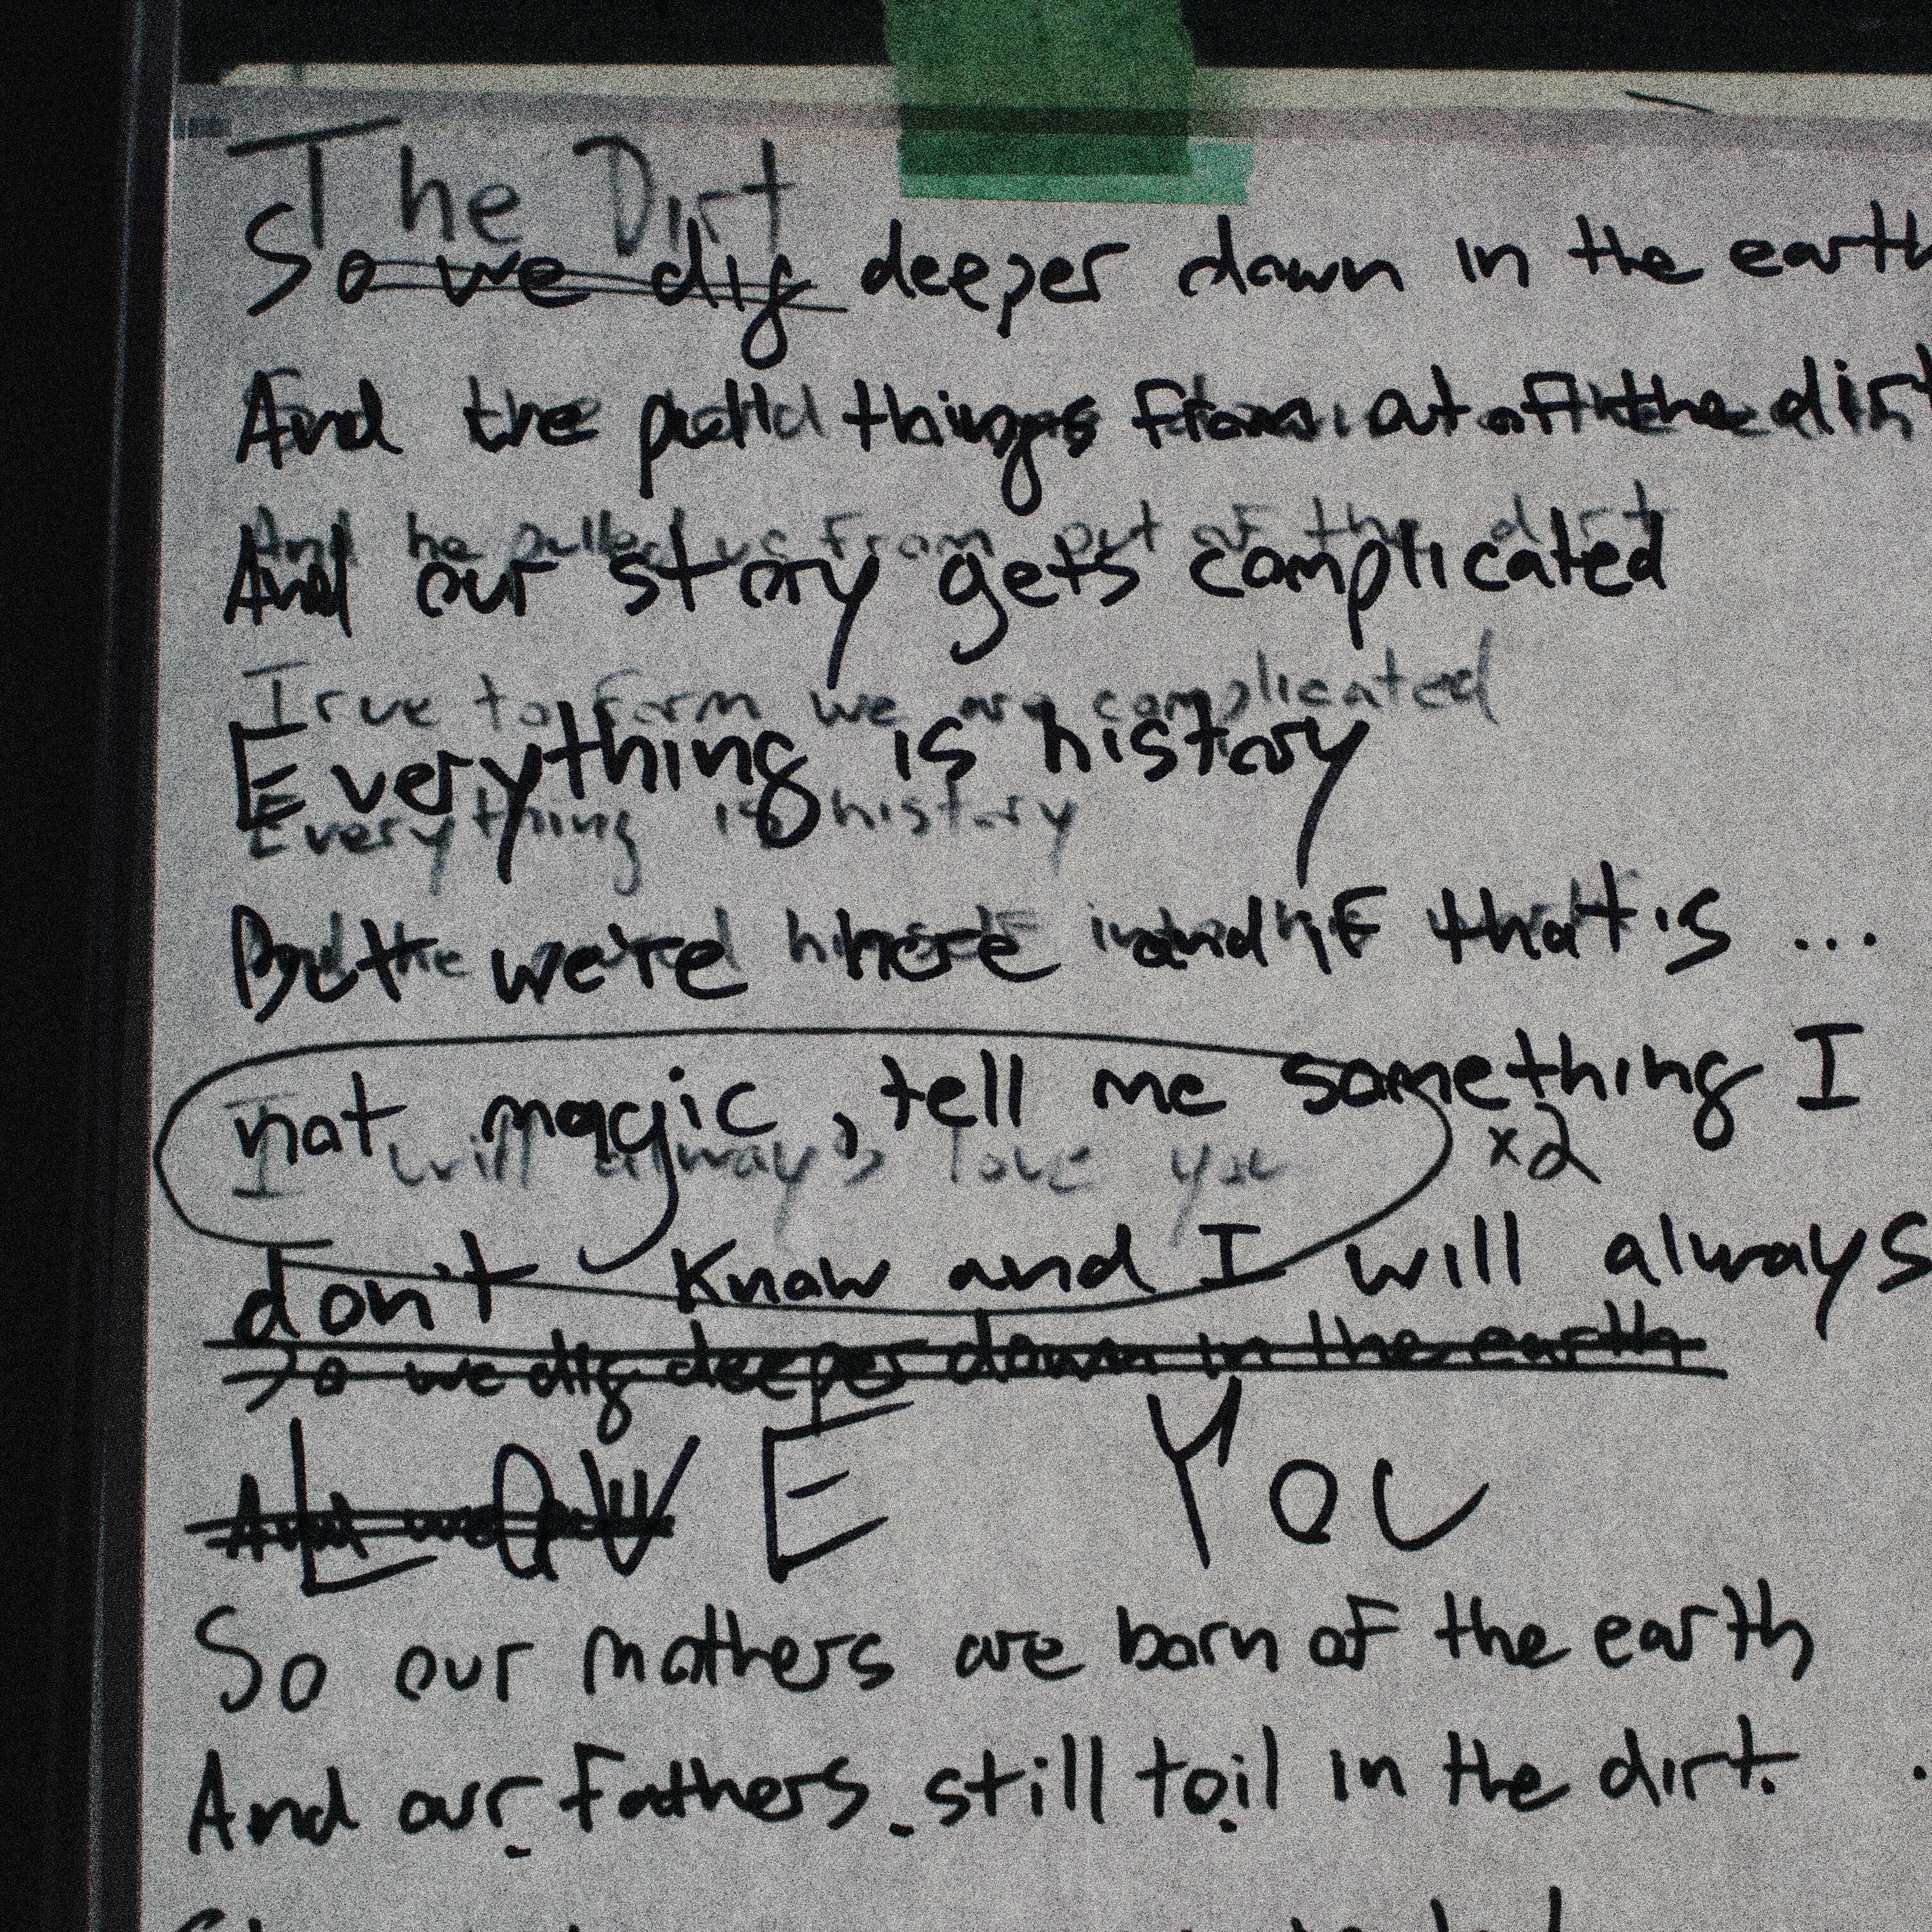 The Dirt
So we dig deeper down in the earth
And the pulld things from out of the dirt
And he pulled us from out of the dirt
And our story gets complicated
True to form we are complicated
Everything is history
Everything is history
But we're here and if that is ...
not magic, tell me something I
x2
I will always love you
don't know and I will always
So we dig deeper down in the earth
LOVE YOU
So our mothers are born of the earth
And our fathers still toil in the dirt.